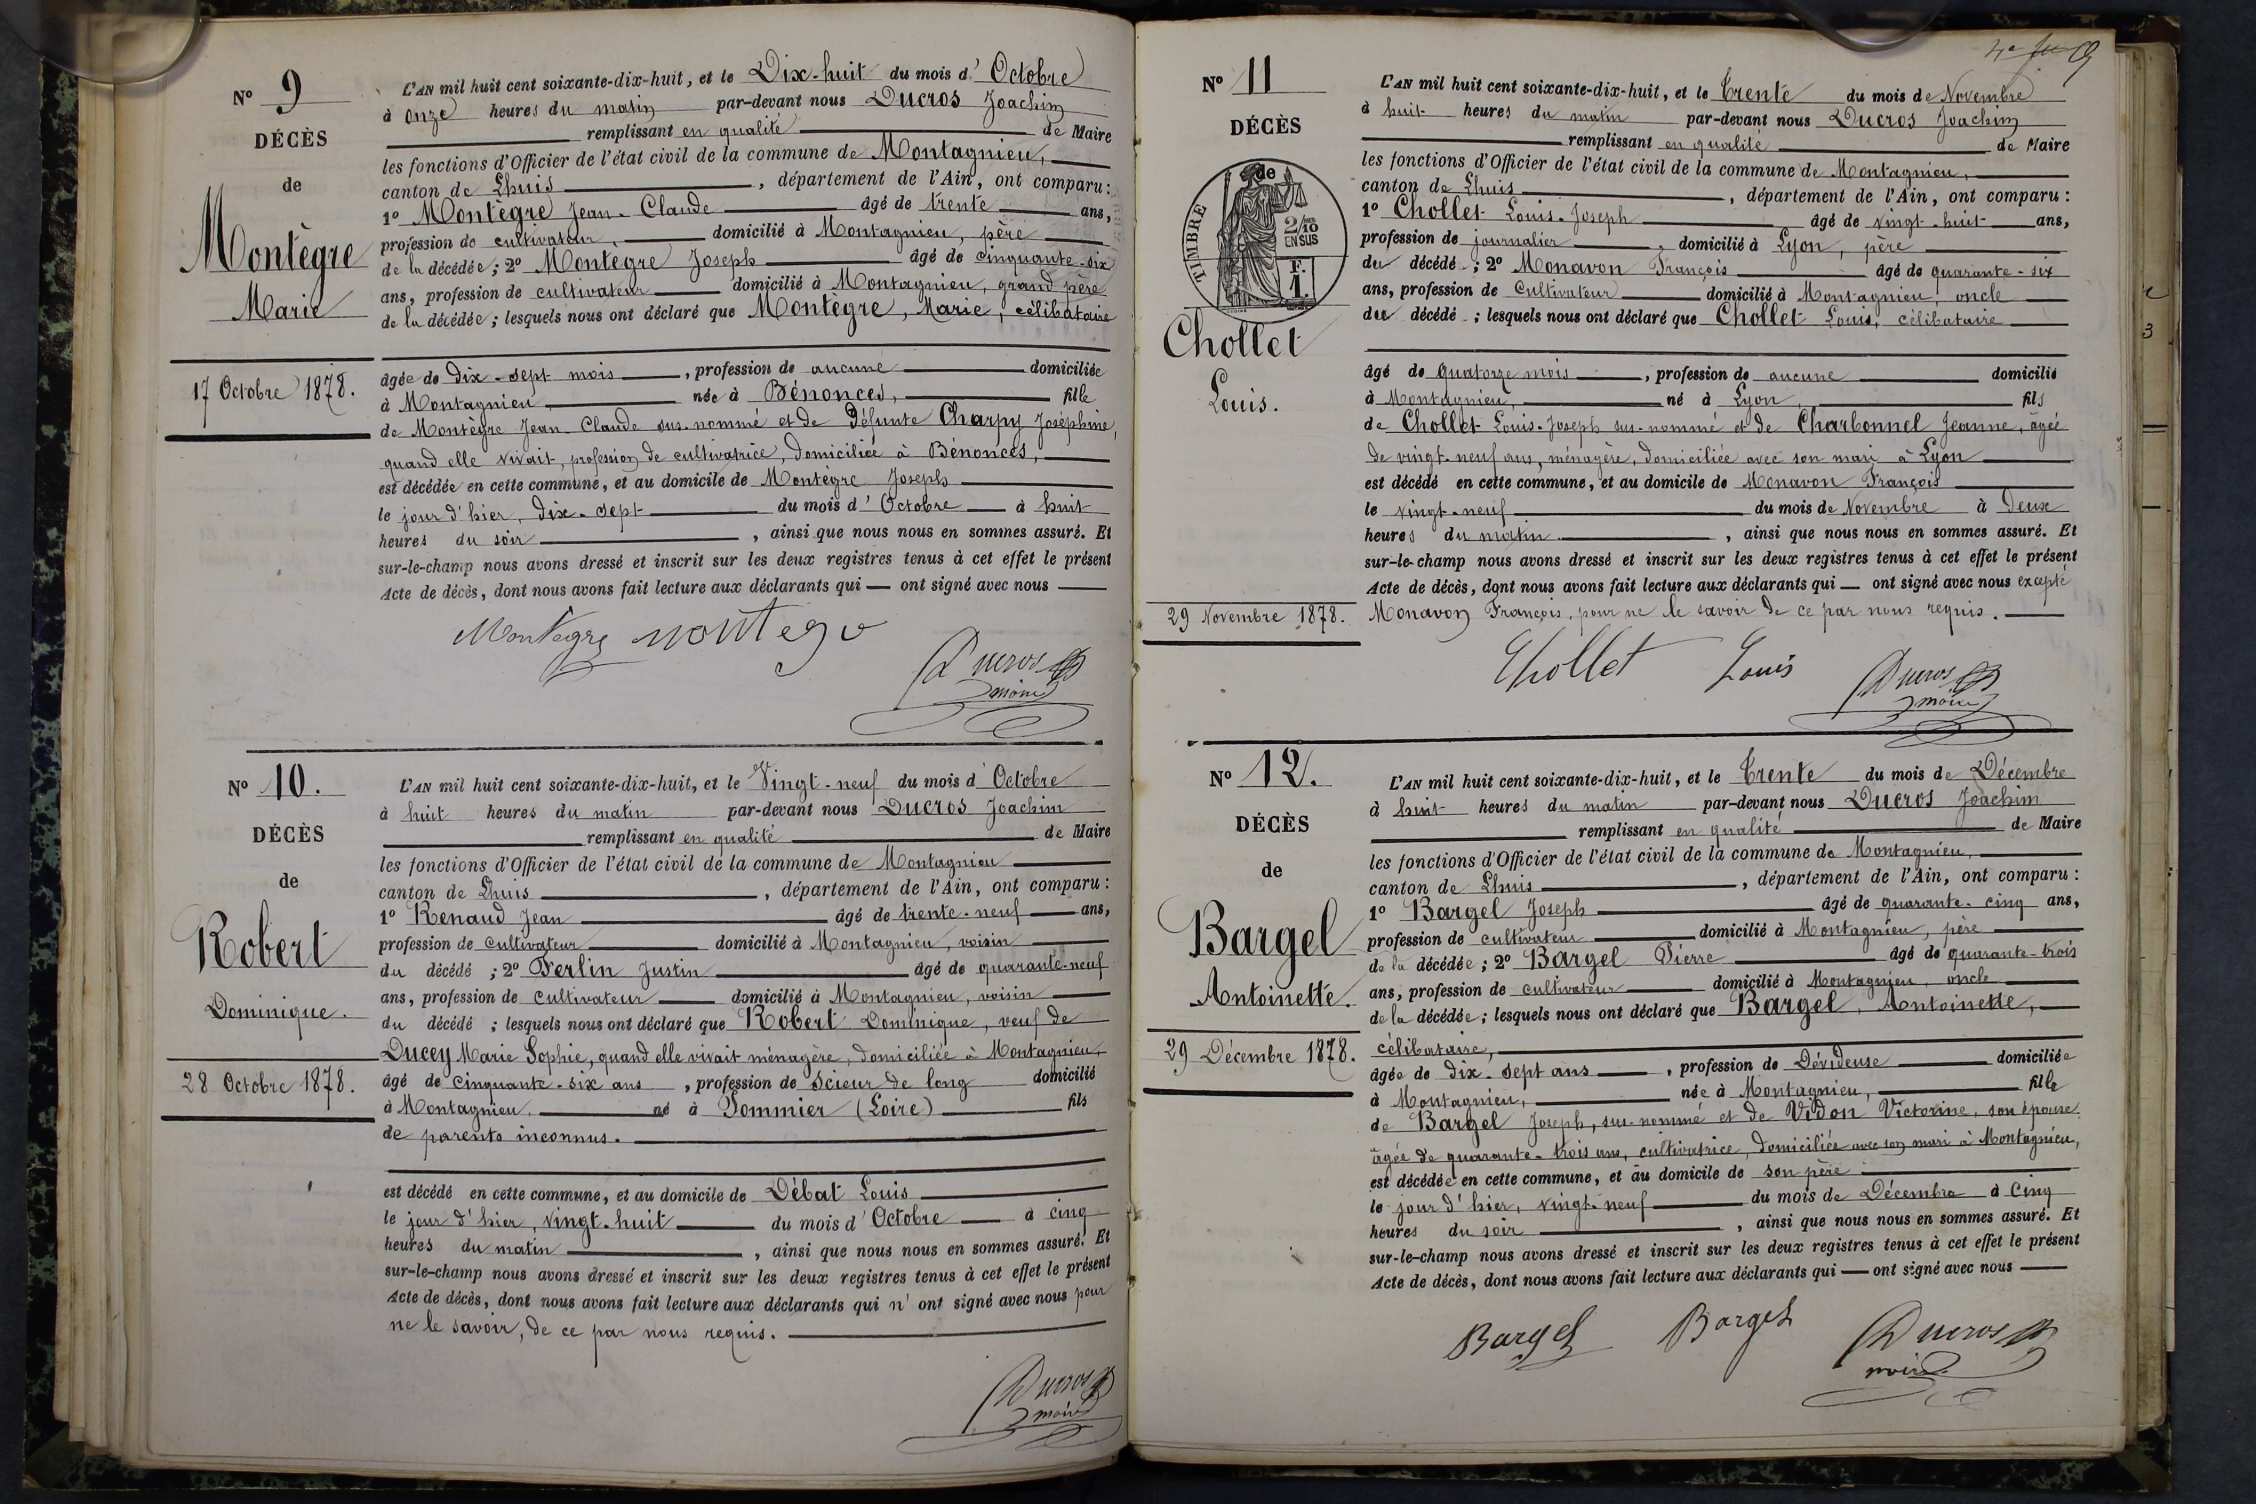 N° 9
DÉCÈS
de
Montègre
Marie
17 Octobre 1878.
L'AN mil huit cent soixante-dix-huit, et le Dix-huit du mois d' Octobre
à onze heures du matin par-devant nous Ducros Joachim
remplissant en qualité de Maire
les fonctions d'Officier de l'état civil de la commune de Montagnieu,
canton de Lhuis, département de l'Ain, ont comparu :
1° Montègre Jean-Claude âgé de trente ans,
profession de cultivateur, domicilié à Montagnieu, père
de la décédée ; 2° Montègre Joseph âgé de cinquante-six
ans, profession de cultivateur domicilié à Montagnieu, grand père
de la décédée ; lesquels nous ont déclaré que Montègre, Marie, célibataire
âgée de dix-sept mois, profession de aucune domiciliée
à Montagnieu, née à Bénonces, fille
de Montègre Jean-Claude sus-nommé et de Défunte Charpy Joséphine,
quand elle vivait, profession de cultivatrice, domiciliée à Bénonces,
est décédée en cette commune, et au domicile de Montègre Joseph
le jour d'hier, dix-sept du mois d' Octobre à huit
heures du soir, ainsi que nous nous en sommes assuré. Et
sur-le-champ nous avons dressé et inscrit sur les deux registres tenus à cet effet le présent
Acte de décès, dont nous avons fait lecture aux déclarants qui — ont signé avec nous
Montègre Montegre
Ducros
maire
N° 10.
DÉCÈS
de
Robert
Dominique.
28 Octobre 1878.
L'AN mil huit cent soixante-dix-huit, et le Vingt-neuf du mois d' Octobre
à huit heures du matin par-devant nous Ducros Joachim
remplissant en qualité de Maire
les fonctions d'Officier de l'état civil de la commune de Montagnieu
canton de Lhuis, département de l'Ain, ont comparu :
1° Renaud Jean âgé de trente-neuf ans,
profession de cultivateur domicilié à Montagnieu, voisin
du décédé ; 2° Ferlin Justin âgé de quarante-neuf
ans, profession de cultivateur domicilié à Montagnieu, voisin
du décédé ; lesquels nous ont déclaré que Robert Dominique, veuf de
Ducey Marie Sophie, quand elle vivait ménagère, domiciliée à Montagnieu,
âgé de cinquante-six ans, profession de scieur de long domicilié
à Montagnieu, né à Sommier (Loire) fils
de parents inconnus.
est décédé en cette commune, et au domicile de Débat Louis
le jour d'hier, vingt-huit du mois d' Octobre à cinq
heures du matin, ainsi que nous nous en sommes assuré. Et
sur-le-champ nous avons dressé et inscrit sur les deux registres tenus à cet effet le présent
Acte de décès, dont nous avons fait lecture aux déclarants qui n' ont signé avec nous pour
ne le savoir, de ce par nous requis.
Ducros
maire
N° 11
DÉCÈS
de
TIMBRE
2/10
EN SUS
F.
1.
Chollet
Louis.
29 Novembre 1878.
L'AN mil huit cent soixante-dix-huit, et le Trente du mois de Novembre
à huit heures du matin par-devant nous Ducros Joachim
remplissant en qualité de Maire
les fonctions d'Officier de l'état civil de la commune de Montagnieu,
canton de Lhuis, département de l'Ain, ont comparu :
1° Chollet Louis-Joseph âgé de vingt-huit ans,
profession de journalier, domicilié à Lyon, père
du décédé ; 2° Monavon François âgé de quarante-six
ans, profession de Cultivateur domicilié à Montagnieu, oncle
du décédé ; lesquels nous ont déclaré que Chollet Louis, célibataire
âgé de quatorze mois, profession de aucune domicilié
à Montagnieu, né à Lyon, fils
de Chollet Louis-Joseph sus-nommé et de Charbonnel Jeanne, âgée
de vingt-neuf ans, ménagère, domiciliée avec son mari à Lyon
est décédé en cette commune, et au domicile de Monavon François
le vingt-neuf du mois de Novembre à Deux
heures du matin, ainsi que nous nous en sommes assuré. Et
sur-le-champ nous avons dressé et inscrit sur les deux registres tenus à cet effet le présent
Acte de décès, dont nous avons fait lecture aux déclarants qui — ont signé avec nous excepté
Monavon François, pour ne le savoir de ce par nous requis.
Chollet Louis
Ducros
maire
N° 12.
DÉCÈS
de
Bargel
Antoinette.
29 Décembre 1878.
L'AN mil huit cent soixante-dix-huit, et le Trente du mois de Décembre
à huit heures du matin par-devant nous Ducros Joachim
remplissant en qualité de Maire
les fonctions d'Officier de l'état civil de la commune de Montagnieu,
canton de Lhuis, département de l'Ain, ont comparu :
1° Bargel Joseph âgé de quarante-cinq ans,
profession de cultivateur domicilié à Montagnieu, père
de la décédée ; 2° Bargel Pierre âgé de quarante-trois
ans, profession de cultivateur domicilié à Montagnieu, oncle
de la décédée ; lesquels nous ont déclaré que Bargel, Antoinette,
célibataire,
âgée de dix-sept ans, profession de Dévideuse domiciliée
à Montagnieu, née à Montagnieu, fille
de Bargel Joseph, sus-nommé et de Vidon Victorine, son épouse
âgée de quarante-trois ans, cultivatrice, domiciliée avec son mari à Montagnieu,
est décédée en cette commune, et au domicile de son père
le jour d'hier, vingt-neuf du mois de Décembre à Cinq
heures du soir, ainsi que nous nous en sommes assuré. Et
sur-le-champ nous avons dressé et inscrit sur les deux registres tenus à cet effet le présent
Acte de décès, dont nous avons fait lecture aux déclarants qui — ont signé avec nous
Bargel Bargel
Ducros
maire